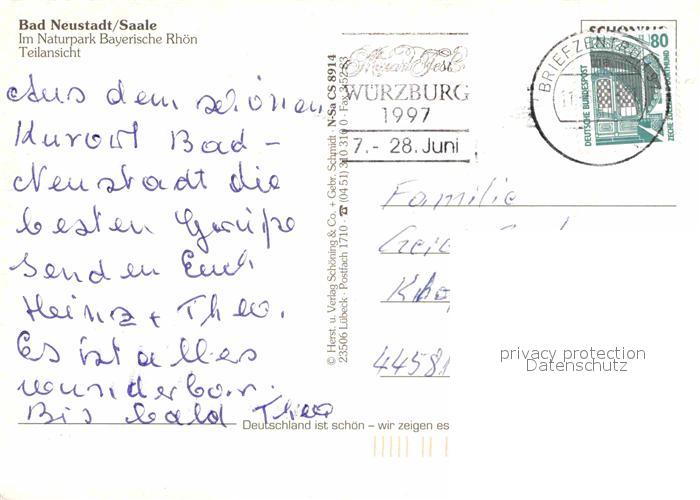 Bad Neustadt/Saale
Im Naturpark Bayerische Rhön
Teilansicht
Aus dem schönen
Kurort Bad-
Neustadt die
besten Grüße
senden Euch
Heinz + Theo.
Es ist alles
wunderbar.
Bis bald Theo
Deutschland ist schön – wir zeigen es
© Herst. u. Verlag Schöning & Co. + Gebr. Schmidt · N-Sa CS 8914
23506 Lübeck · Postfach 1710 · ☎ (04 51) 3 10 31 0
Mozart Fest
WÜRZBURG
1997
7.- 28. Juni
BRIEFZENTRUM 97
80
DEUTSCHE BUNDESPOST
Familie
44581
privacy protection
Datenschutz